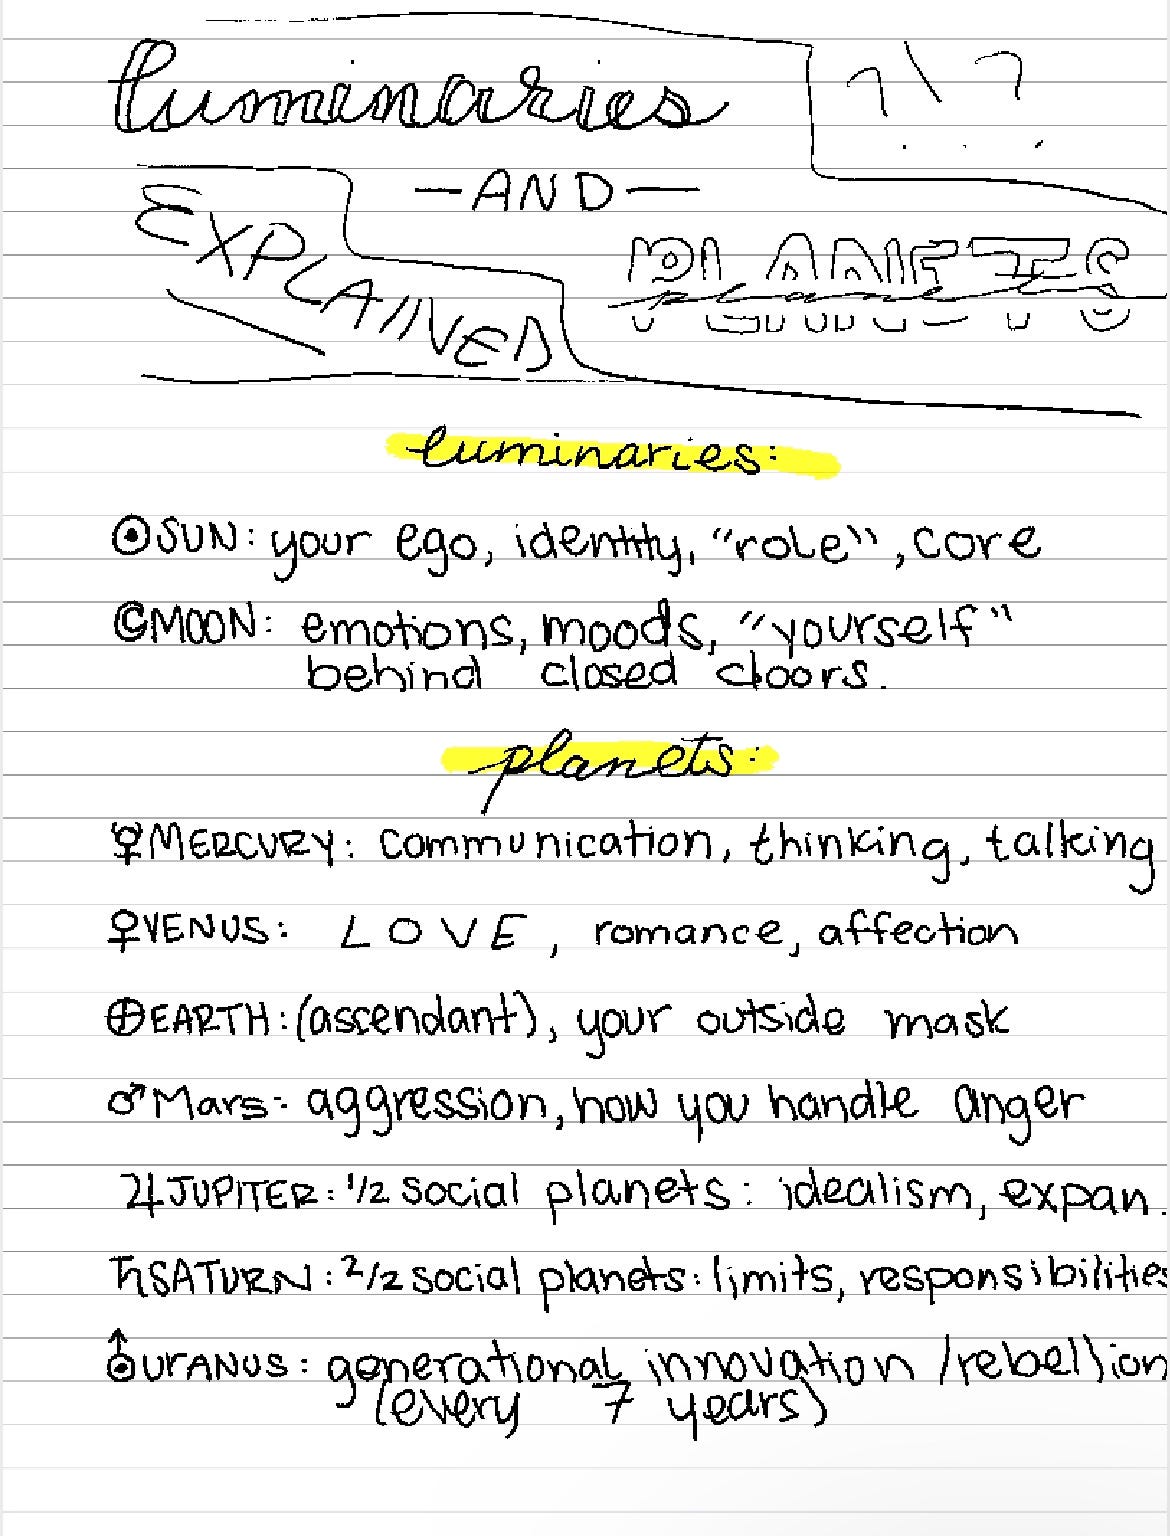 luminaries
— AND —
PLANETS
planets
EXPLAINED
luminaries:
☉SUN: your ego, identity, "role", core
☾MOON: emotions, moods, "yourself"
behind closed doors.
planets:
☿MERCURY: communication, thinking, talking
♀VENUS: LOVE, romance, affection
⊕EARTH: (ascendant), your outside mask
♂Mars: aggression, how you handle anger
♃JUPITER: 1/2 social planets: idealism, expan.
♄SATURN: 2/2 social planets: limits, responsibilities
⛢URANUS: generational innovation /rebellion
(every 7 years)